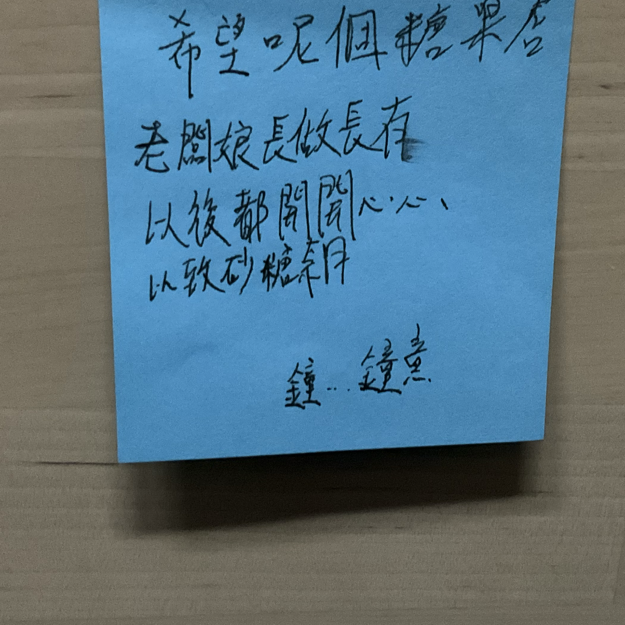 希望呢個糖果
老闆娘長做長存
以後都開開心心、
以致砂糖奈月
鐘...鐘意